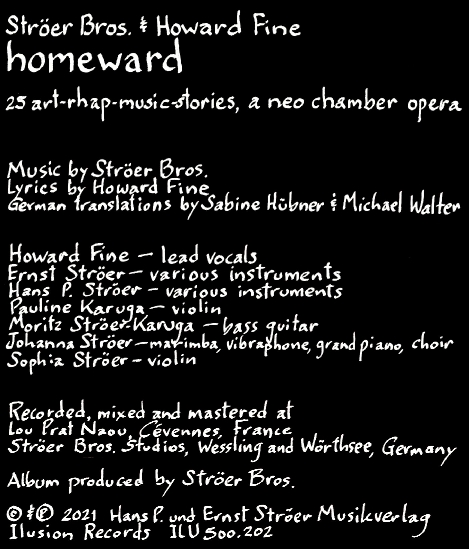 Ströer Bros. & Howard Fine
homeward
25 art-rhap-music-stories, a neo chamber opera
Music by Ströer Bros.
Lyrics by Howard Fine
German translations by Sabine Hübner & Michael Walter
Howard Fine – lead vocals
Ernst Ströer – various instruments
Hans P. Ströer – various instruments
Pauline Karuga – violin
Moritz Ströer-Karuga – bass guitar
Johanna Ströer – marimba, vibraphone, grand piano, choir
Sophia Ströer – violin
Recorded, mixed and mastered at
Lou Prat Naou, Cévennes, France
Ströer Bros. Studios, Wessling and Wörthsee, Germany
Album produced by Ströer Bros.
© & ℗ 2021 Hans P. und Ernst Ströer Musikverlag
Ilusion Records ILU 500.202